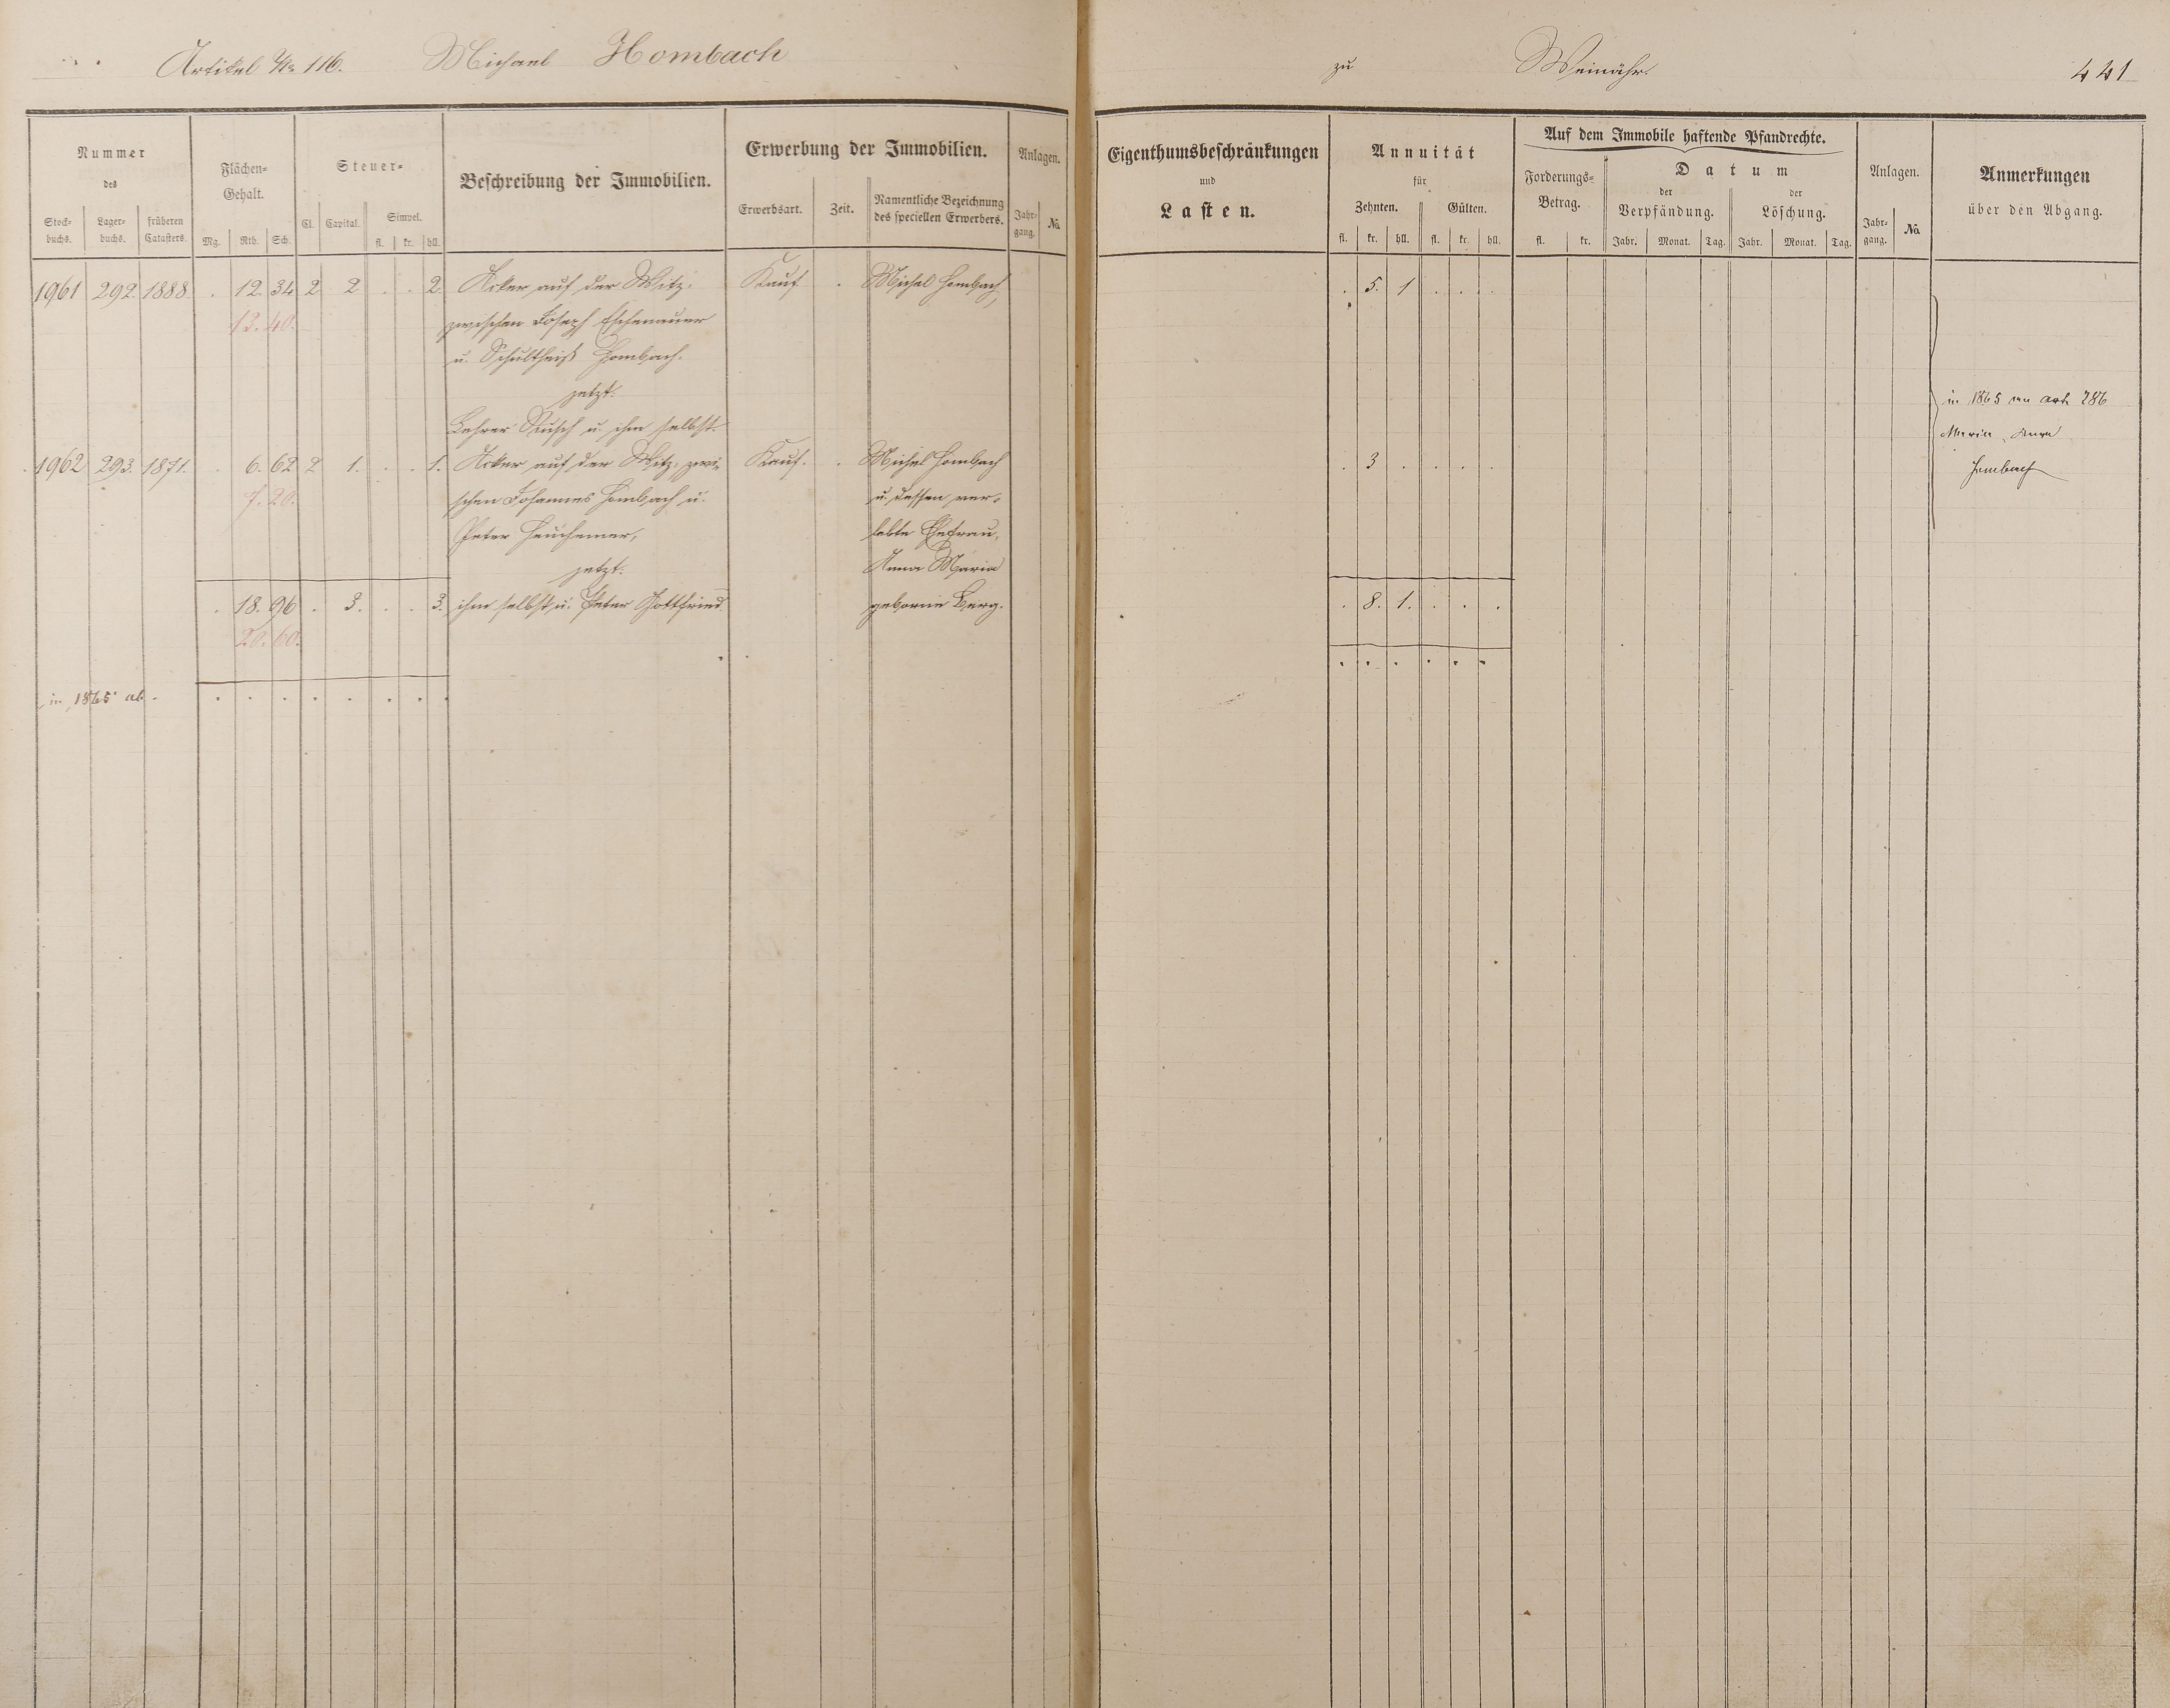 Artikel No 116. Michael Hombach zu Weinähr. 441
Nummer des
Stock-buchs. Lager-buchs. früheren Catasters.
Flächen-Gehalt.
Mg. Rth. Sch.
Steuer-
Cl. Capital. Simpel.
fl. kr. hll.
Beschreibung der Immobilien.
Erwerbung der Immobilien.
Erwerbsart. Zeit. Namentliche Bezeichnung des speciellen Erwerbers.
Anlagen.
Jahr-gang. No
Eigenthumsbeschränkungen
und
Lasten.
Annuität
für
Zehnten. Gülten.
fl. kr. hll. fl. kr. hll.
Auf dem Immobile haftende Pfandrechte.
Forderungs-Betrag.
fl. kr.
Datum
der Verpfändung. der Löschung.
Jahr. Monat. Tag. Jahr. Monat. Tag.
Anlagen.
Jahr-gang. No
Anmerkungen
über den Abgang.
1961 292 1888 . 12. 34 2 2 . . 2. Acker auf der Witz. Kauf . Michel Hombach . 5. 1 . . .
12. 40. zwischen Joseph Eschenauer
u. Schultheiß Hombach.
jetzt:
Lehrer Rusch u. ihm selbst.
in 1865 an art 286
Maria Anna
Hombach
1962 293. 1871. . 6. 62 2 1. . . 1. Acker auf der Witz, zwi- Kauf. . Michel Hombach . 3 . . . .
7. 20. schen Johannes Hombach u. u. dessen ver-
Peter Heuchemer, lebte Ehefrau,
jetzt: Anna Maria
. 18. 96 . 3. . . 3. ihm selbst u. Peter Gottfried. geborne Berg. . 8. 1. . . .
20. 60.
in 1865 ab . . . . . . . .